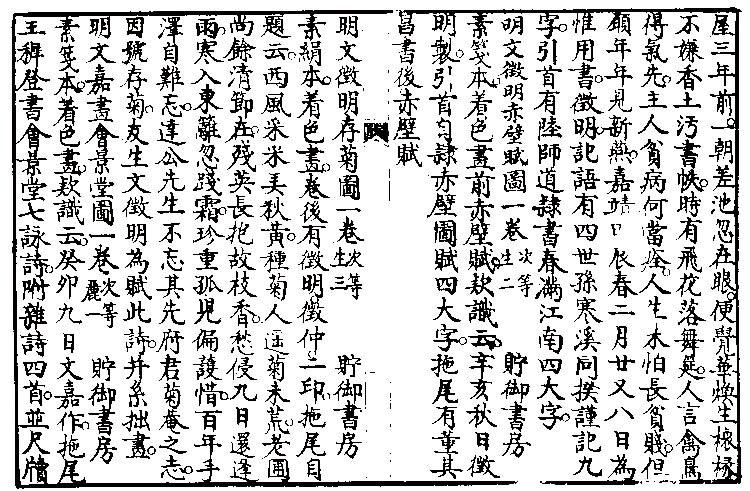 屋三年前一朝差池忽在眼便覺華煥生榱桷
不嫌香土汚書帙時有飛花落舞筵人言禽鳥
得氣先主人貧病何當痊人生未怕長貧賤但
願年年見新燕嘉靖甲辰春二月廿又八日為
惟用書徵明記語有四世孫寒溪同撰謹記九
字引首有陸師道隷書春滿江南四大字
明文徵明赤壁賦圖一卷次等生二 貯御書房
素箋本着色畫前赤壁賦款識云辛亥秋日徵
明製引首自隷赤壁圖賦四大字拖尾有董其
昌書後赤壁賦
明文徵明存菊圖一卷次等生三 貯御書房
素絹本着色畫卷後有徵明徵仲二印拖尾自
題云西風采采弄秋黄種菊人遥菊未荒老圃
尚餘清節在殘英長抱故枝香愁侵九日還逢
雨寒入東籬忽踐霜珍重孤兒偏護惜百年手
澤自難忘達公先生不忘其先府君菊菴之志
因號存菊友生文徵明為賦此詩并系拙畫
明文嘉畫會景堂圖一卷次等麗一 貯御書房
素箋本着色畫款識云癸卯九日文嘉作拖尾
王穉登書會景堂七詠詩附雜詩四首並尺牘